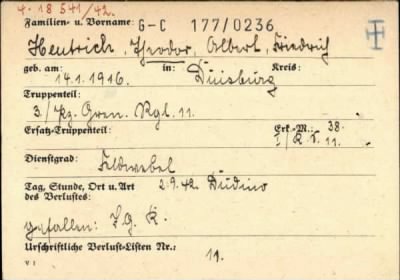 4-18541/42.
Familien- u. Vorname: G-C 177/0236
Hentrich, Theodor, Albert, Friedrich
geb. am: in: Kreis:
14.1.1916. Duisburg
Truppenteil:
3./Pz. Gren. Rgt. 11.
Ersatz-Truppenteil: Erk.-M.: 38.
I/R. 11.
Dienstgrad:
Feldwebel
Tag, Stunde, Ort u. Art 2.9.42. Dudino
des Verlustes:
gefallen: J.G. K.
Urschriftliche Verlust-Listen Nr.: 11.
V I